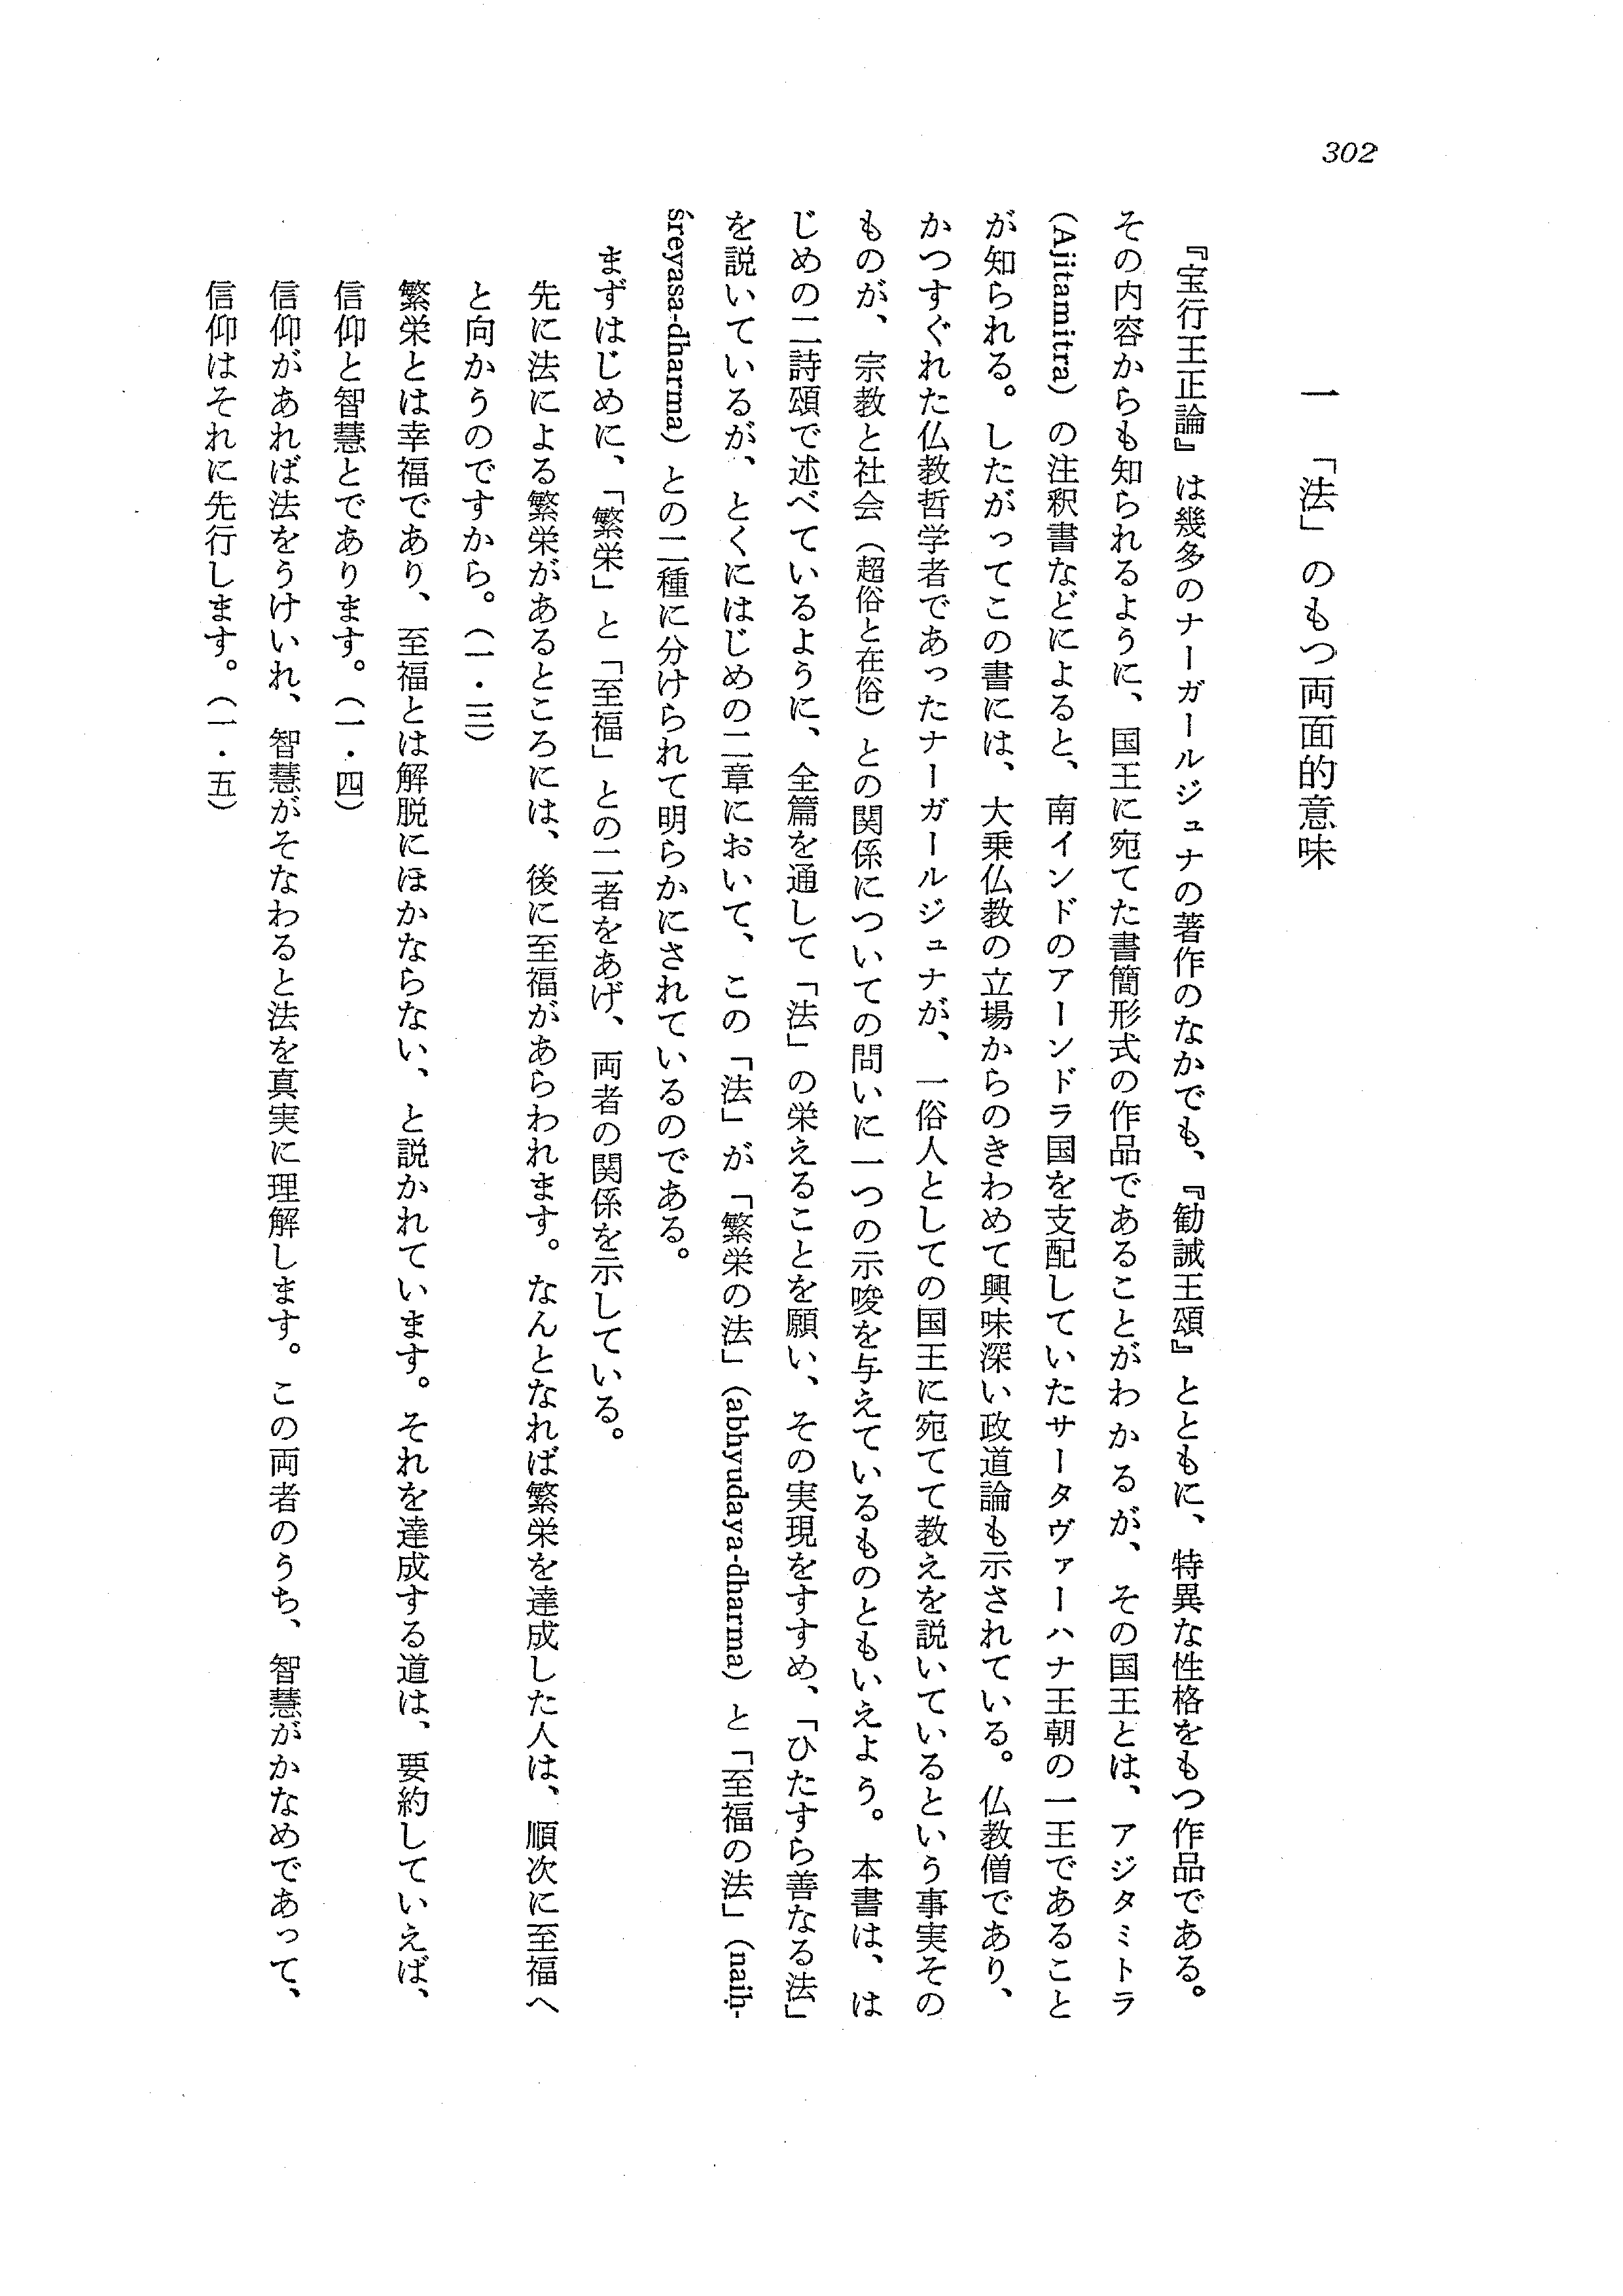 302
一　「法」のもつ両面的意味
『宝行王正論』は幾多のナーガールジュナの著作のなかでも、『勧誡王頌』とともに、特異な性格をもつ作品である。
その内容からも知られるように、国王に宛てた書簡形式の作品であることがわかるが、その国王とは、アジタミトラ
(Ajitamitra)の注釈書などによると、南インドのアーンドラ国を支配していたサータヴァーハナ王朝の一王であること
が知られる。したがってこの書には、大乗仏教の立場からのきわめて興味深い政道論も示されている。仏教僧であり、
かつすぐれた仏教哲学者であったナーガールジュナが、一俗人としての国王に宛てて教えを説いているという事実その
ものが、宗教と社会(超俗と在俗)との関係についての問いに一つの示唆を与えているものともいえよう。本書は、は
じめの二詩頌で述べているように、全篇を通して「法」の栄えることを願い、その実現をすすめ、「ひたすら善なる法」
を説いているが、とくにはじめの二章において、この「法」が「繁栄の法」(abhyudaya-dharma)と「至福の法」(naiḥ-
śreyasa-dharma)との二種に分けられて明らかにされているのである。
まずはじめに、「繁栄」と「至福」との二者をあげ、両者の関係を示している。
先に法による繁栄があるところには、後に至福があらわれます。なんとなれば繁栄を達成した人は、順次に至福へ
と向かうのですから。(一・三)
繁栄とは幸福であり、至福とは解脱にほかならない、と説かれています。それを達成する道は、要約していえば、
信仰と智慧とであります。(一・四)
信仰があれば法をうけいれ、智慧がそなわると法を真実に理解します。この両者のうち、智慧がかなめであって、
信仰はそれに先行します。(一・五)